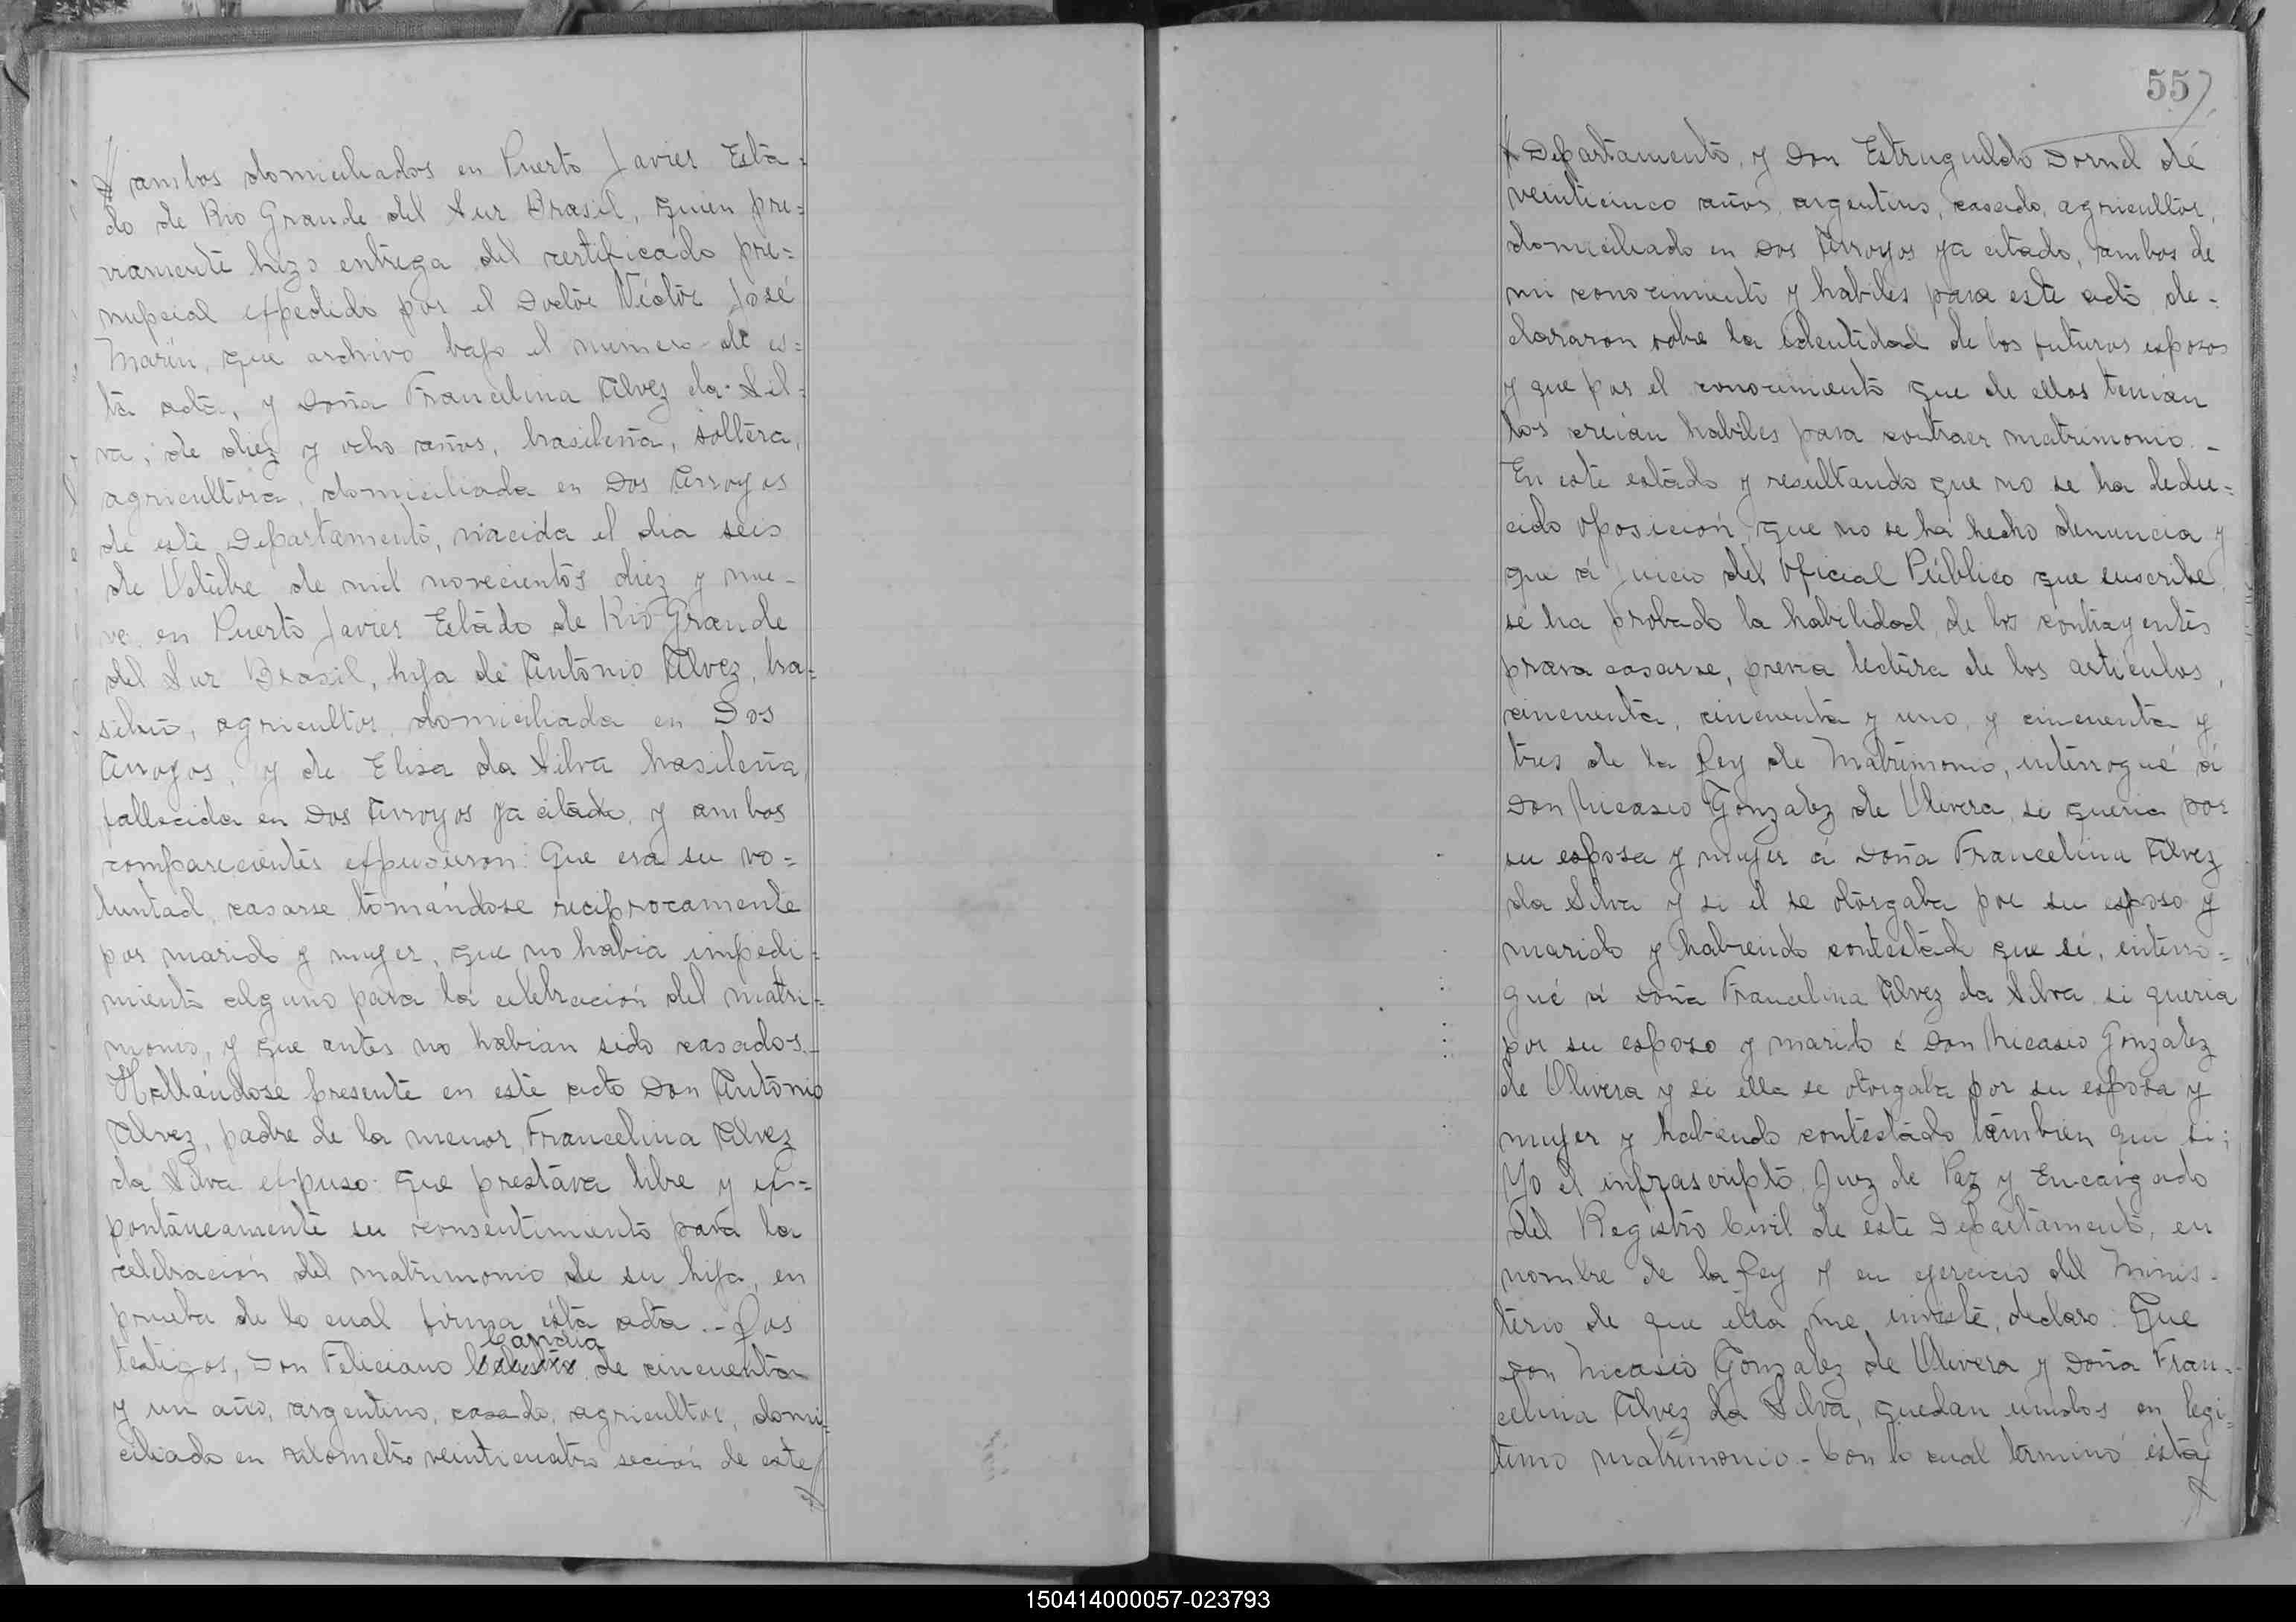 ambos domiciliados en Puerto Javier Esta=
do de Rio Grande del Sur Brasil, quien pre=
viamente hizo entrega del certificado pre=
nupcial expedido por el Doctor Victor José
Marín, que archivo bajo el numero de es=
ta acta, y Doña Francelina Alvez da Sil=
va, de diez y ocho años, brasileña, soltera,
agricultora, domiciliada en Dos Arroyos
de este Departamento, nacida el dia seis
de Octubre de mil novecientos diez y nue-
ve en Puerto Javier Estado de Rio Grande
del Sur Brasil, hija de Antonio Alvez, bra=
sileño, agricultor, domiciliada en Dos
Arroyos, y de Elisa da Silva brasileña,
fallecida en Dos Arroyos ya citado, y ambos
comparecientes expusieron: Que era su vo=
luntad casarse tomándose reciprocamente
por marido y mujer, que no habia impedi=
miento alguno para la celebración del matri=
monio, y que antes no habian sido casados.-
Hallándose presente en este acto Don Antonio
Alvez, padre de la menor, Francelina Alvez
da Silva expuso: que prestava libre y es=
pontáneamente su consentimiento para la
celebración del matrimonio de su hija, en
prueba de lo cual firma ésta acta.- Los
Candia
testigos, Don Feliciano de cincuenta
y un año, argentino, casado, agricultor, domi=
ciliado en kilometro veinticuatro sección de este
557
Departamento, y Don Estruguildo Dornel de
veinticinco años, argentino, casado, agricultor,
domiciliado en Dos Arroyos ya citado, ambos de
mi conocimiento y habiles para este acto, de-
clararon sobre la identidad de los futuros esposos
y que por el conocimiento que de ellos tenian
los creian habiles para contraer matrimonio.-
En este estado y resultando que no se ha dedu=
cido oposición, que no se ha hecho denuncia y
que á juicio del Oficial Público que suscribe
se ha probado la habilidad de los contrayentes
para casarse, previa lectura de los articulos,
cincuenta, cincuenta y uno, y cincuenta y
tres de la Ley de Matrimonio, interrogué á
Don Nicasio Gonzalez de Olivera, si queria por
su esposa y mujer á Doña Francelina Alvez
da Silva y si el se otorgaba por su esposo y
marido y habiendo contestado que si, interro=
gué á Doña Francelina Alvez da Silva si queria
por su esposo y marido á Don Nicasio Gonzalez
de Olivera y si ella se otorgaba por su esposa y
mujer y habiendo contestado tambien que si;
Yo el infrascripto Juez de Paz y Encargado
del Registro Civil de este Departamento, en
nombre de la Ley y en ejercicio del Minis-
terio de que ella me inviste, declaro: Que
Don Nicasio Gonzalez de Olivera y Doña Fran=
celina Alvez da Silva, quedan unidos en legi=
timo matrimonio.- Con lo cual terminó ésta
150414000057-023793